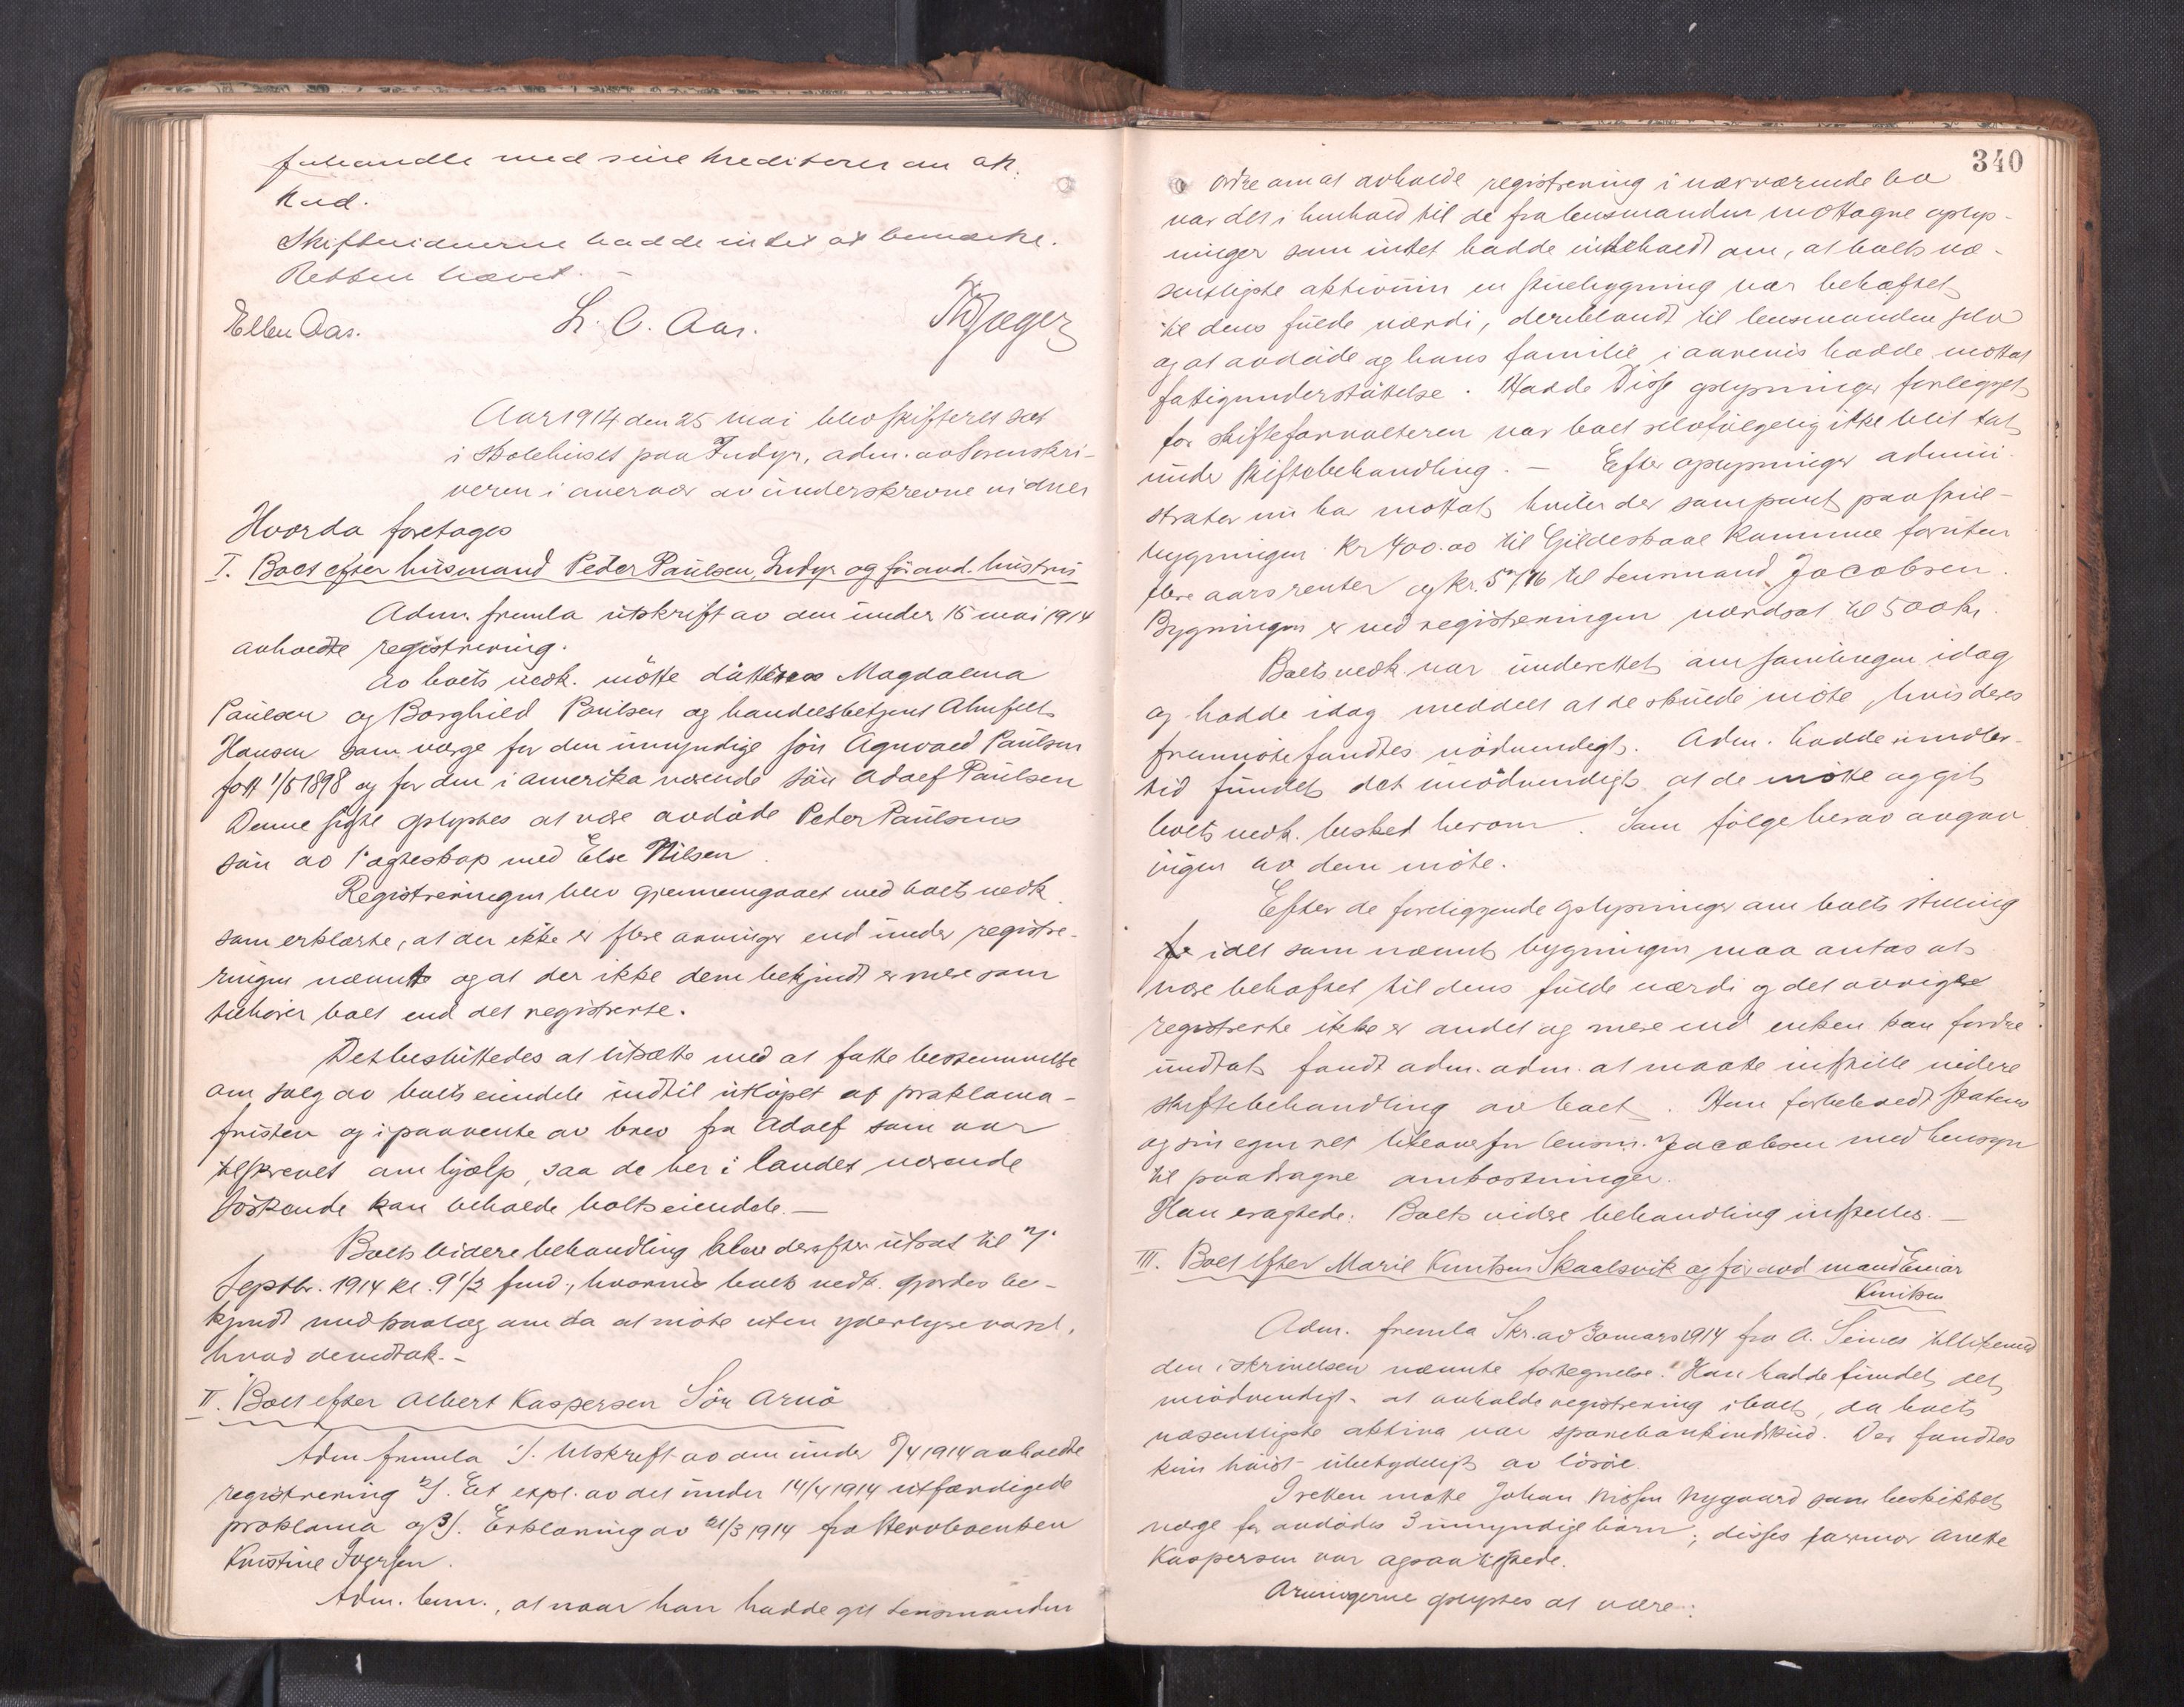 forhandle med sine kreditorer om ak-
kord.
Skiftevidnerne hadde intet at bemærke.
Retten hævet. –
Ellen Aas. L. C. Aas.
Aar 1914 den 25 mai blev skifteret sat
i skolehuset paa Indyr, adm. av Sorenskri-
veren i overvær av underskrevne vidner
Hvorda foretages
I. Boet efter husmand Peder Paulsen, Indyr og før avd. hustru
Adm. fremla utskrift av den under 15 mai 1914
avholdte registrering.
Av boets vedk. møtte døttrene Magdalena
Paulsen og Borghild Paulsen og handelsbetjent Almfelt
Hansen som værge for den umyndige søn Agnvald Paulsen
født 1/5 1898 og for den i Amerika værende søn Adolf Paulsen
Denne sidste oplystes at være avdøde Peter Paulsens
søn av 1ste ægteskap med Else Nilsen.
Registreringen blev gjennemgaaet med boets vedk.
som erklærte, at der ikke er flere arvinger end under registre-
ringen nævnt og at der ikke dem bekjendt er mere som
tilhører boet end det registrerte.
Det besluttedes at utsætte med at fatte bestemmelse
om salg av boets eiendele indtil utløpet af proklama-
fristen og i paavente av brev fra Adolf som var
tilskrevet om hjælp, saa de her i landet værende
søskende kan beholde boets eiendele. –
Boets videre behandling blev derefter utsat til
Septbr. 1914 kl. 9 1/2 fmd., hvormed boets vedk. gjordes be-
kjendt med paalæg om da at møte uten yderligere varsel,
hvad de vedtok. –
II. Boet efter Albert Kaspersen Sör Arnö
Adm fremla 1/. Utskrift av den under 8/4 1914 avholdte
registrering 2/. Et expl. av det under 14/4 1914 utfærdigede
proklama og 3/. Erklæring av 21/3 1914 fra
Kristine Iversen.
Adm. bem., at naar han hadde git lensmanden
340
ordre om at avholde registrering i nærværende bo
var det i henhold til de fra lensmanden mottagne oplys-
ninger som intet hadde indeholdt om, at boets væ-
sentligste aktivum en stuebygning var behæftet
til dens fulde værdi, deriblandt til lensmanden selv
og at avdøde og hans familie i aarevis hadde mottat
fatigunderstøttelse. Hadde disse oplysninger foreligget
for skifteforvalteren var boet selvfølgelig ikke blit tat
under skiftebehandling. – Efter oplysninger admini-
strator nu har mottat, hviler der som pant paa stue-
bygningen kr 400.00 til Gildeskaal kommune foruten
flere aars renter og kr. 57/16 til Lensmand Jacobsen.
Bygningen er ved registreringen værdsat til 500 kr.
Boets vedk. var underrettet om samlingen idag
og hadde idag meddelt at de skulde møte, hvis deres
fremmøte fandtes nødvendigt. Adm. hadde imidler-
tid fundet det unødvendigt at de møtte og git
boets vedk. besked herom. Som følge herav avgav
ingen av dem møte.
Efter de foreliggende oplysninger om boets stilling
idet som nævnt bygningen maa antas at
være behæftet til dens fulde værdi og det øvrige
registrerte ikke er andet og mere end enken kan fordre
undtat fandt adm. adm. at maatte indstille videre
skiftebehandling av boet. Han forbeholdt statens
og sin egen ret likeoverfor lensm. Jacobsen med hensyn
til paadragne omkostninger.
Han eragtede: Boets videre behandling indstilles. –
III. Boet efter Marie Knutsen Skaalsvik og før avd mand Einar
Knutsen
Adm. fremla Skr. av 30 mars 1914 fra A. Seines tillikemed
den i skrivelsen nævnte fortegnelse. Han hadde fundet det
unødvendigt at avholde registrering i boet, da boets
væsentligste aktiva var sparebankindskud. Der fandtes
kun høist ubetydeligt av løsøre.
I retten møtte Johan Nissen Nygaard som beskikket
værge for avdødes 3 umyndige børn; disses farmor Anette
Kaspersen var ogsaa tilstede.
Arvingerne oplystes at være: